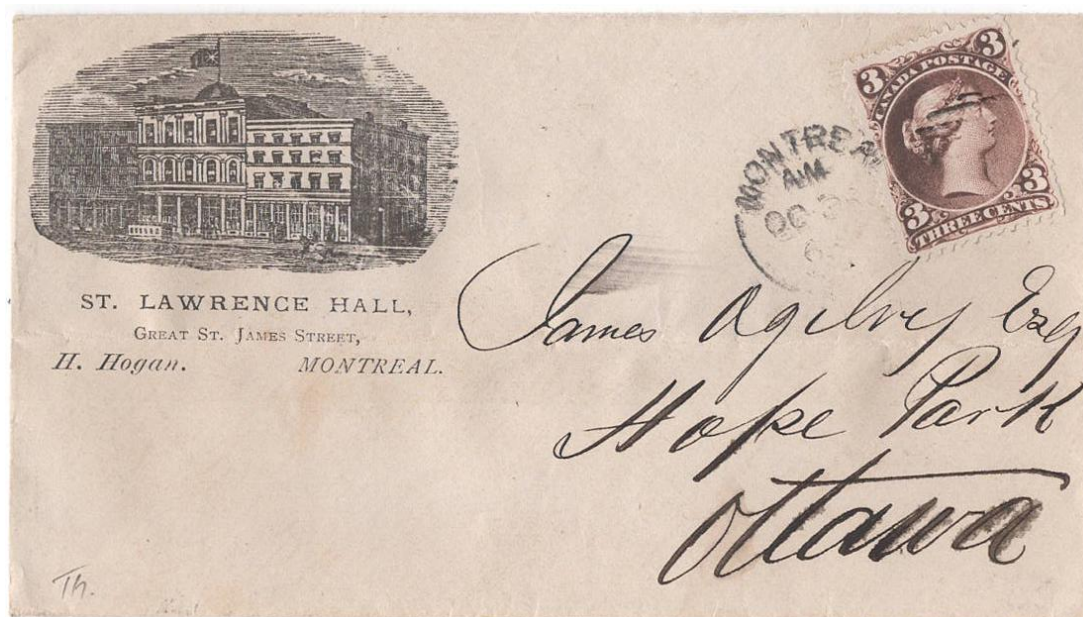 ST. LAWRENCE HALL,
GREAT ST. JAMES STREET,
H. Hogan. MONTREAL.
MONTREA
AM
OC
3 3
CANADA POSTAGE
3 3
THREE CENTS
James Ogilvy Esq
Hope Park
Ottawa
Th.